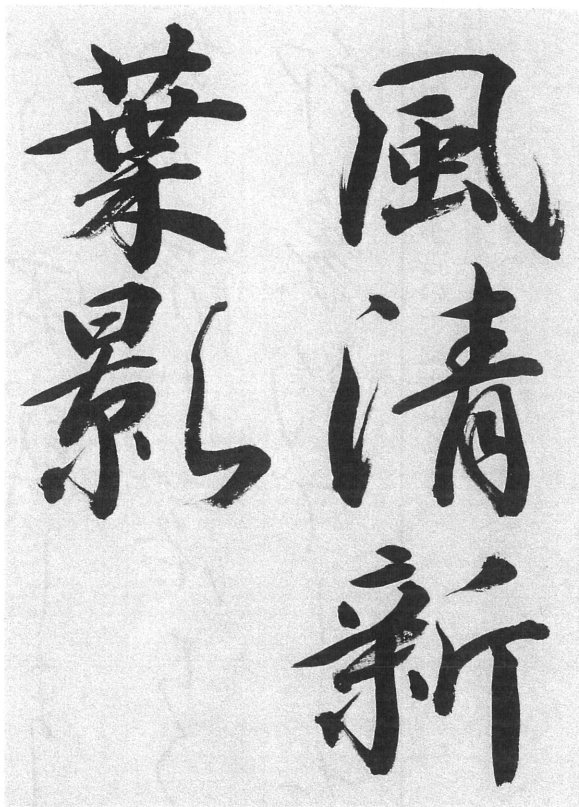 風清新
葉影